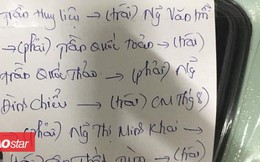 Trần Huy Liệu → (trái) Ng Văn Trỗi
→ (phải) Trần Quốc Toản → (trái)
Trần Quốc Thảo → (phải) Ng
Đình Chiểu → (trái) CM Thg 8)
→ (phải) Ng Thị Minh Khai →
(trái)
aostar